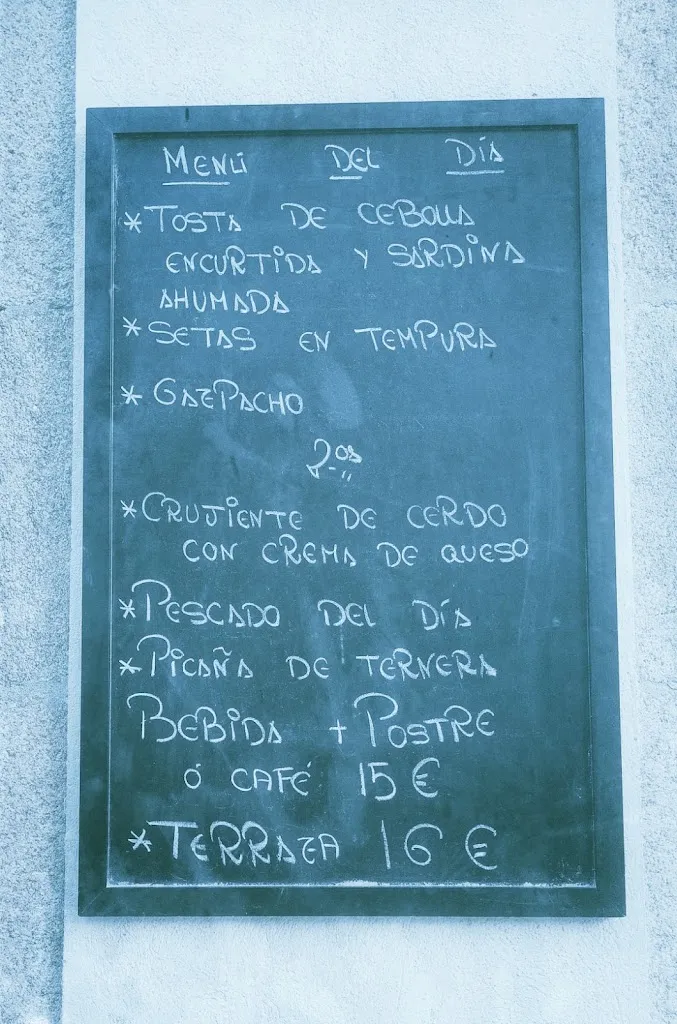 MENÚ DEL DÍA
* TOSTA DE CEBOLLA
ENCURTIDA Y SARDINA
AHUMADA
* SETAS EN TEMPURA
* GAZPACHO
2os
* CRUJIENTE DE CERDO
CON CREMA DE QUESO
* PESCADO DEL DÍA
* PICAÑA DE TERNERA
BEBIDA + POSTRE
Ó CAFÉ 15 €
* TERRAZA 16 €